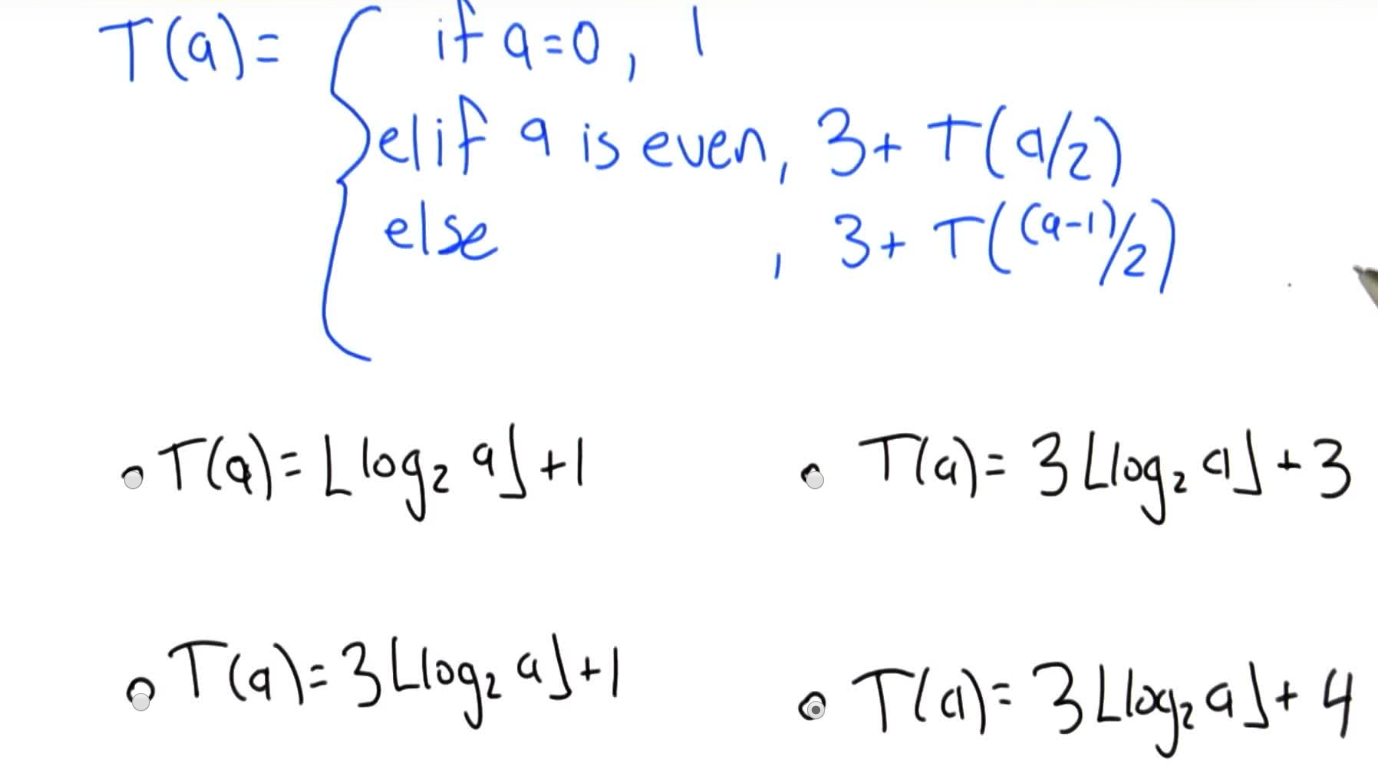 T(a)= { if a=0, 1
elif a is even, 3+ T(a/2)
else , 3+ T((a-1)/2)
T(a)= ⌊log₂ a⌋+1
T(a)= 3⌊log₂ a⌋+3
T(a)= 3⌊log₂ a⌋+1
T(a)= 3⌊log₂ a⌋+ 4